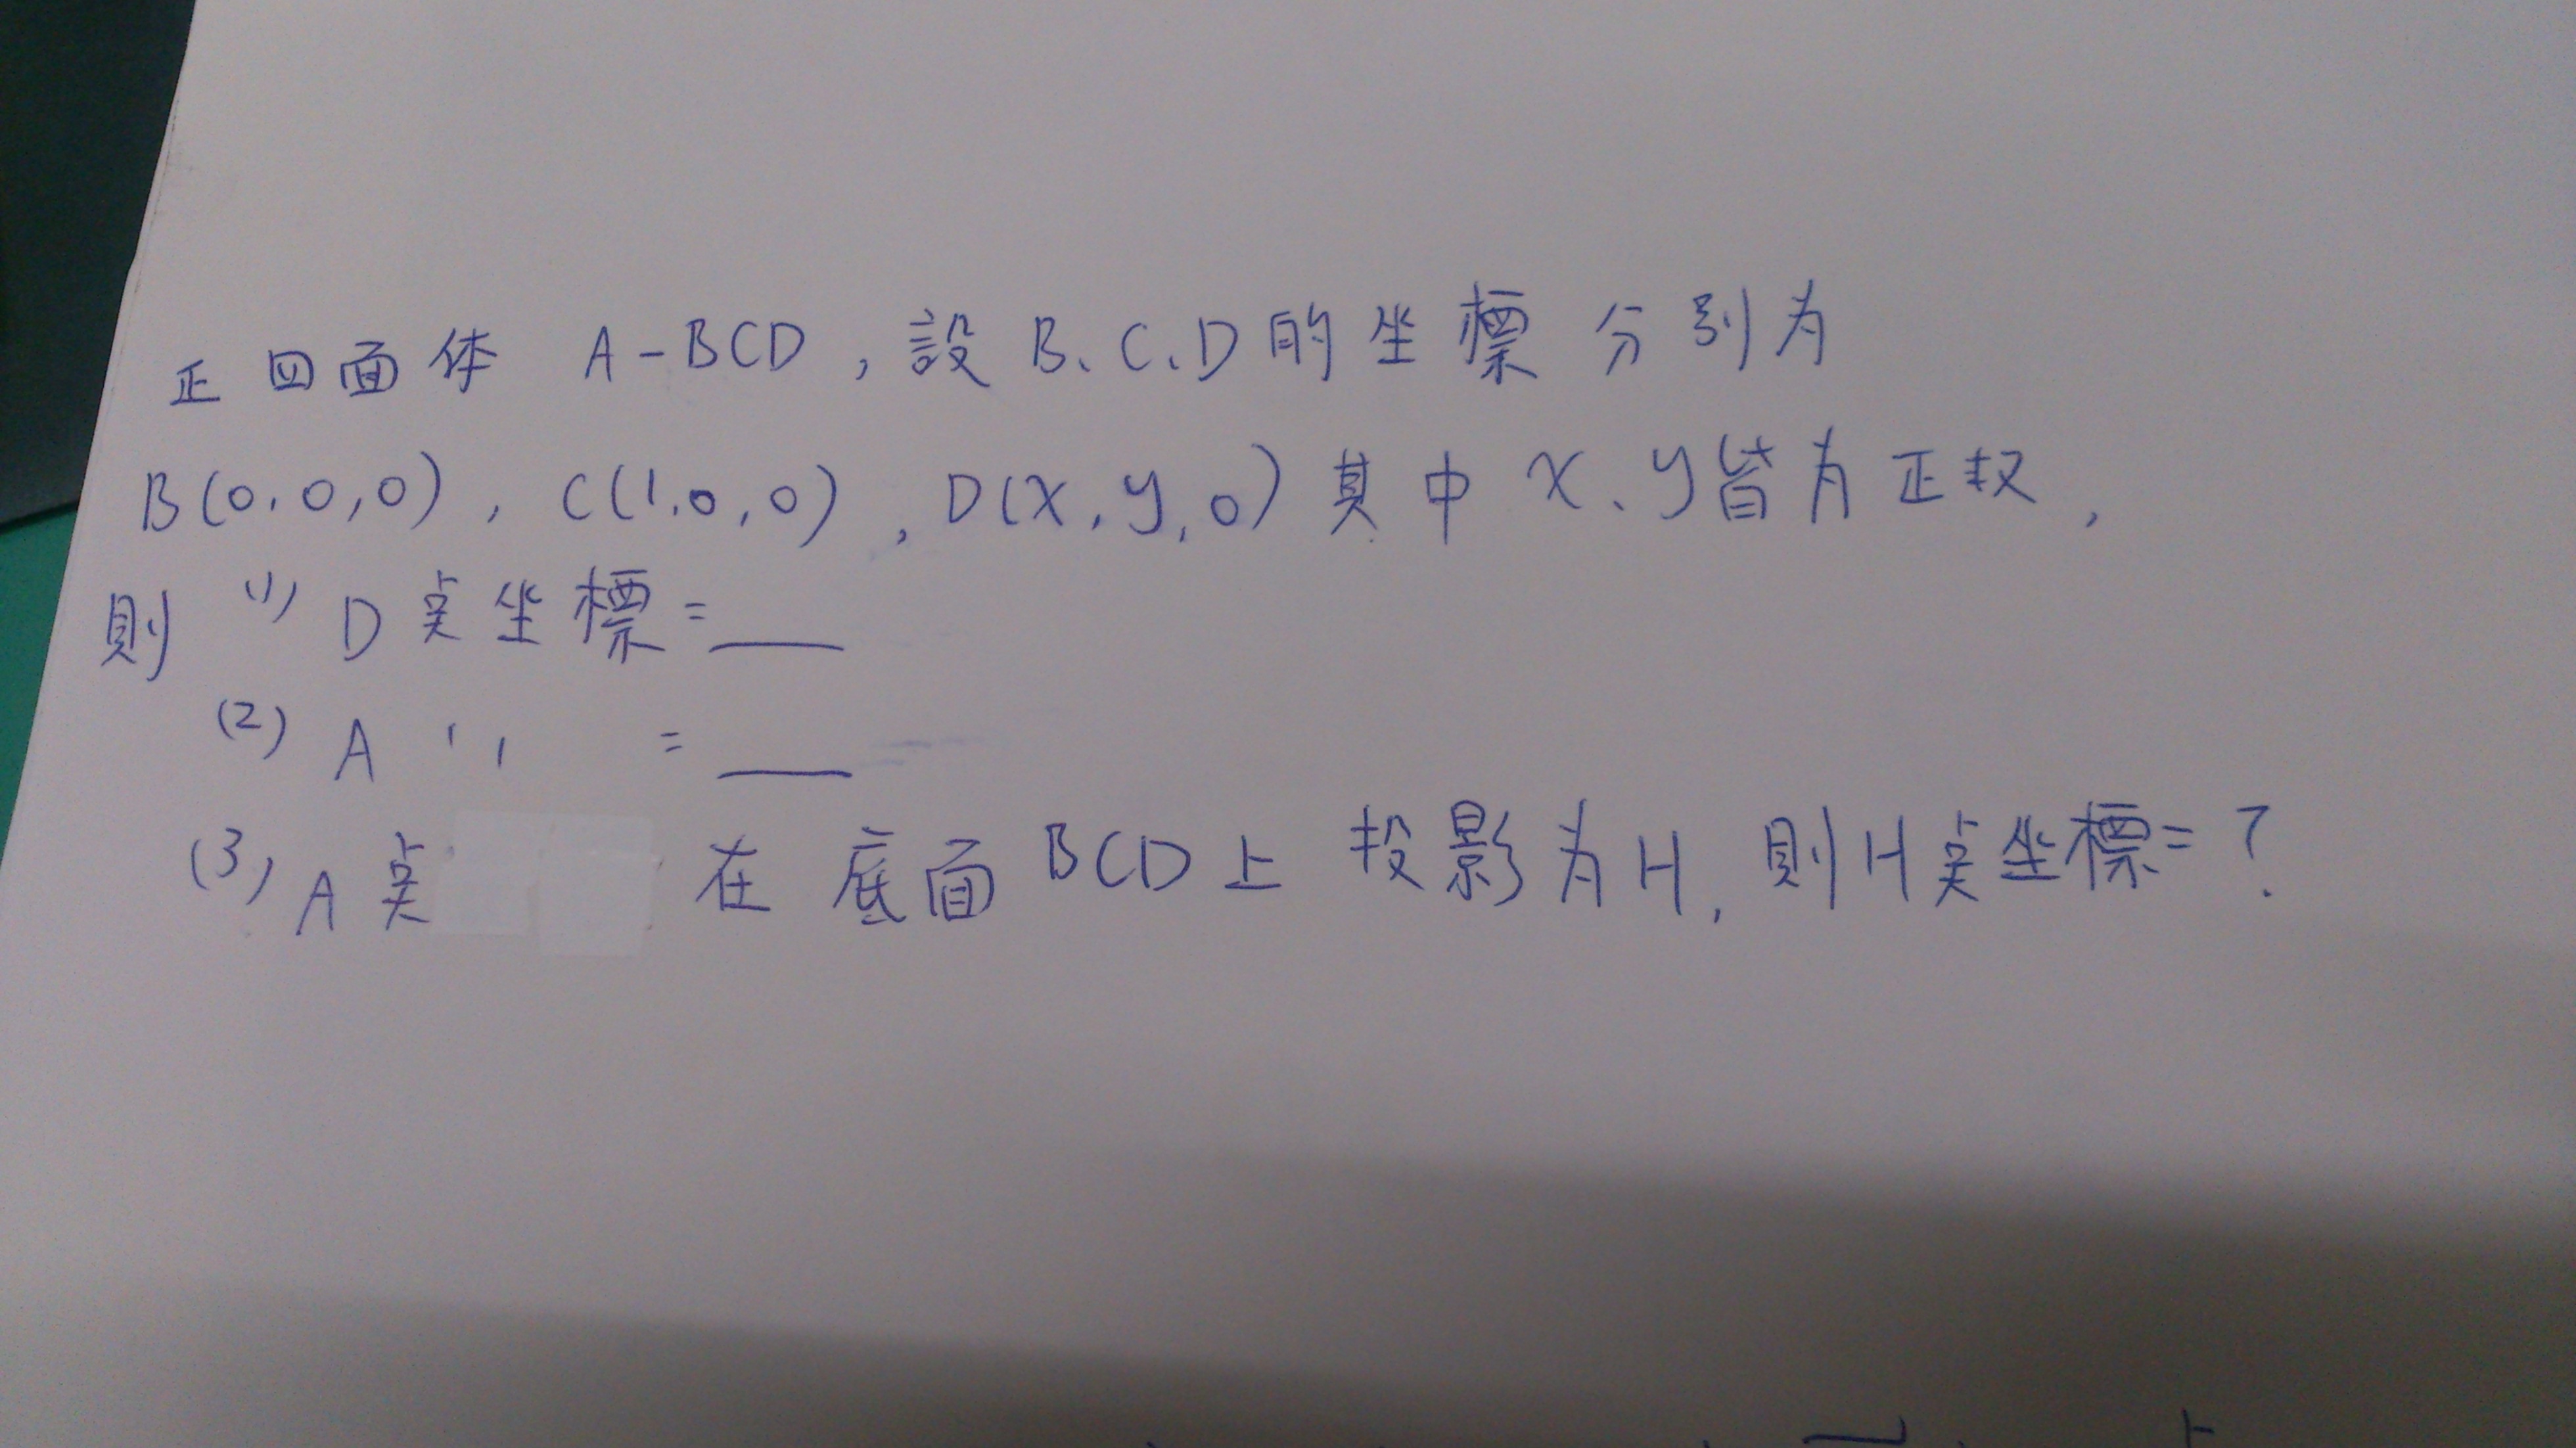 正四面体 A-BCD，設 B、C、D的坐標分別为
B(0,0,0)，C(1,0,0)，D(x,y,0)其中 x、y皆为正奴，
則 (1) D点坐標=___
(2) A 〃 =___
(3) A点 在底面BCD上 投影为H，則H点坐標=?